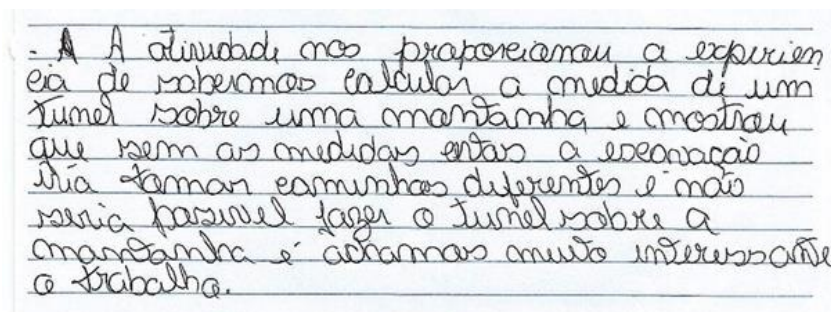 - A A atividade nos proporcionou a experien
cia de sabermos calcular a medida de um
tunel sobre uma montanha e mostrou
que sem as medidas certas a escavação
iria tomar caminhos diferentes e não
seria possivel fazer o tunel sobre a
montanha e achamos muito interessante
o trabalho.